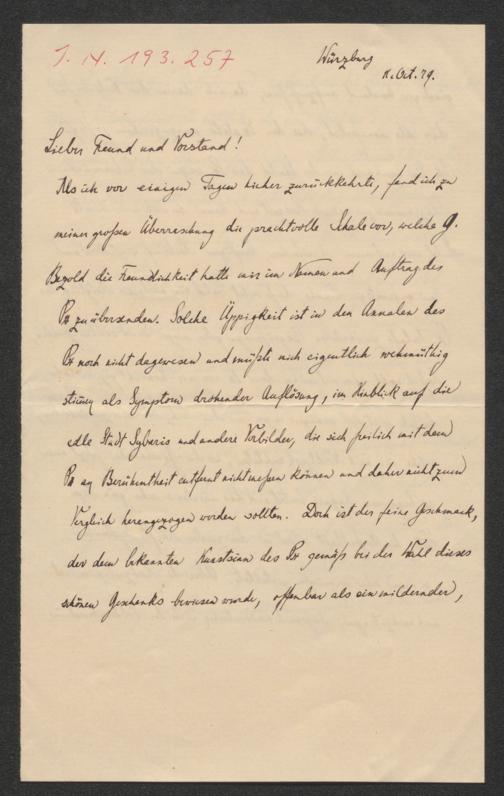 J. N. 193.257
Würzburg
11. Oct. 79.
Lieber Freund und Vorstand!
Als ich vor einigen Tagen hieher zurückkehrte, fand ich zu
meiner großen Überraschung die prachtvolle Schale vor, welche G.
Bezold die Freundlichkeit hatte mir im Namen und Auftrag des
zu übersenden. Solche Üppigkeit ist in den Annalen des
noch nicht dagewesen und müßte mich eigentlich wehmüthig
stimmen als Symptom drohender Auflösung, im Hinblick auf die
edle Stadt Syberis und andere Vorbilder, die sich freilich mit dem
an Berühmtheit entfernt nicht meßen können und daher nicht zum
Vergleich herangezogen werden sollten. Doch ist der feine Geschmack,
der dem bekannten Kunstsinn des gemäß bei der Wahl dieses
schönen Geschenks bewiesen wurde, offenbar als ein mildernder,